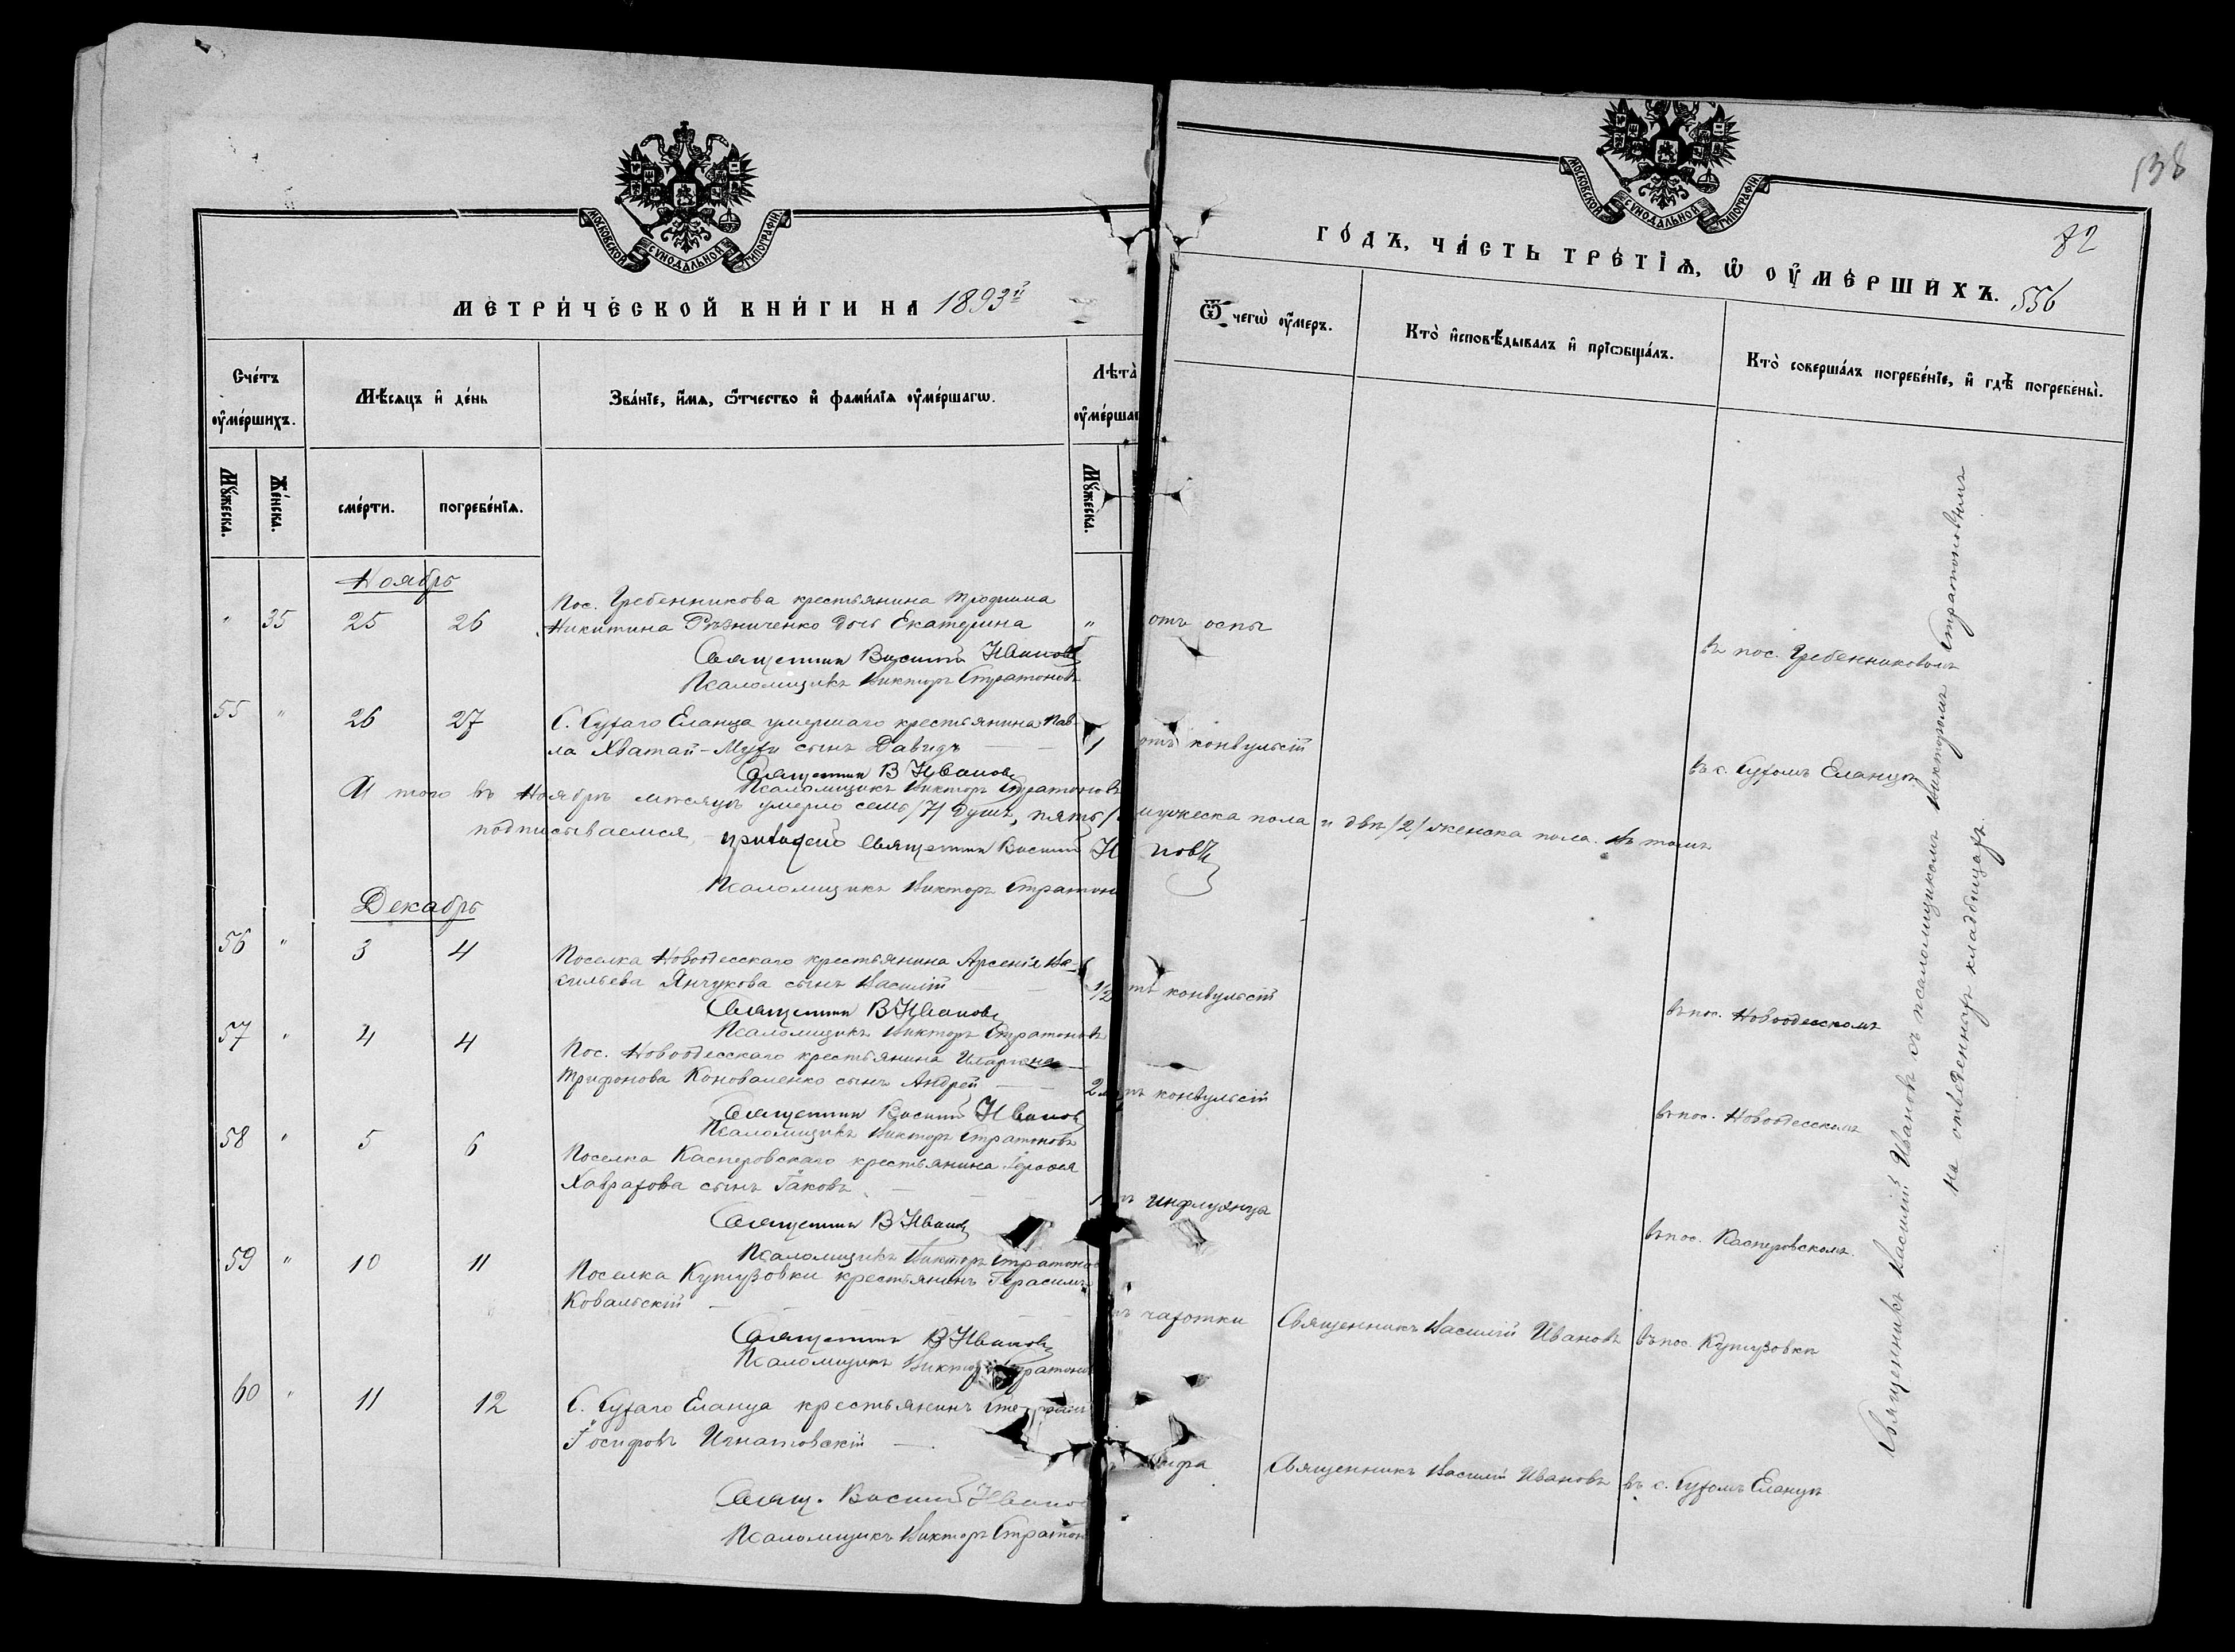 МОСКОВСКОЙ СУНОДАЛЬНОЙ ТИПОГРАФІИ
МЕТРИЧЕСКОЙ КНИГИ НА 1893й
Счетъ умершихъ.
Мѣсяцъ и день
Званіе, имя, отчество и фамилія умершагѡ.
Лѣта
Мужеска.
Женска.
смерти.
погребенія.
Мужеска.
Ноябрь
" 35 25 26 Пос. Гребенникова крестьянина Трофима
Никитина Рѣзниченко дочь Екатерина "
Священник Василий Иванов
Псаломщикъ Викторъ Стратоновъ
55 " 26 27 С. Сухаго Еланца умершаго крестьянина Пав-
ла Хватай-Муху сынъ Давидъ 1
Священник В Иванов
Псаломщикъ Викторъ Стратоновъ
И того въ Ноябрѣ мѣсяцѣ умерло семь /7/ душъ, пять / мужеска пола и двѣ /2/ женска пола. Въ томъ
подписываемся
Священник Василий
Псаломщикъ Викторъ
Декабрь
56 " 3 4 Поселка Новоодесскаго крестьянина Арсенія Ва-
сильева Янчукова сынъ Василій 1/2
Священник В Иванов
Псаломщикъ Викторъ Стратоновъ
57 " 4 4 Пос. Новоодесскаго крестьянина
Трифонова Коноваленко сынъ Андрей 2
Священник Василий Иванов
Псаломщикъ Викторъ Стратоновъ
58 " 5 6 Поселка Касперовскаго крестьянина
сынъ Іаковъ 1
Священник В Иванов
Псаломщикъ Викторъ
59 " 10 11 Поселка Кутузовки крестьянинъ Герасимъ
Ковальскій
Священник В Иванов
Псаломщикъ
60 " 11 12 С. Сухаго Еланца крестьянинъ
Іосифовъ Игнатовскій
Свящ. Василий
Псаломщикъ Викторъ
138
МОСКОВСКОЙ СУНОДАЛЬНОЙ ТИПОГРАФІИ
82
ГОДЪ, ЧАСТЬ ТРЕТІЯ, Ѡ УМЕРШИХЪ.
556
Ѿ чегѡ умеръ.
Кто исповѣдывалъ и пріѡбщалъ.
Кто совершалъ погребеніе, и гдѣ погребены.
отъ оспы въ пос. Гребенниковомъ
отъ конвульсій въ с. Сухомъ Еланцѣ
конвульсій въ пос. Новоодесскомъ
конвульсій въ пос. Новоодесскомъ
инфлуэнца въ пос. Касперовскомъ.
чахотки Священникъ Василій Ивановъ въ пос. Кутузовки
Священникъ Василій Ивановъ въ с. Сухомъ Еланцѣ
Священникъ Василій Ивановъ съ псаломщикомъ Викторомъ
на отведенныхъ кладбищахъ.